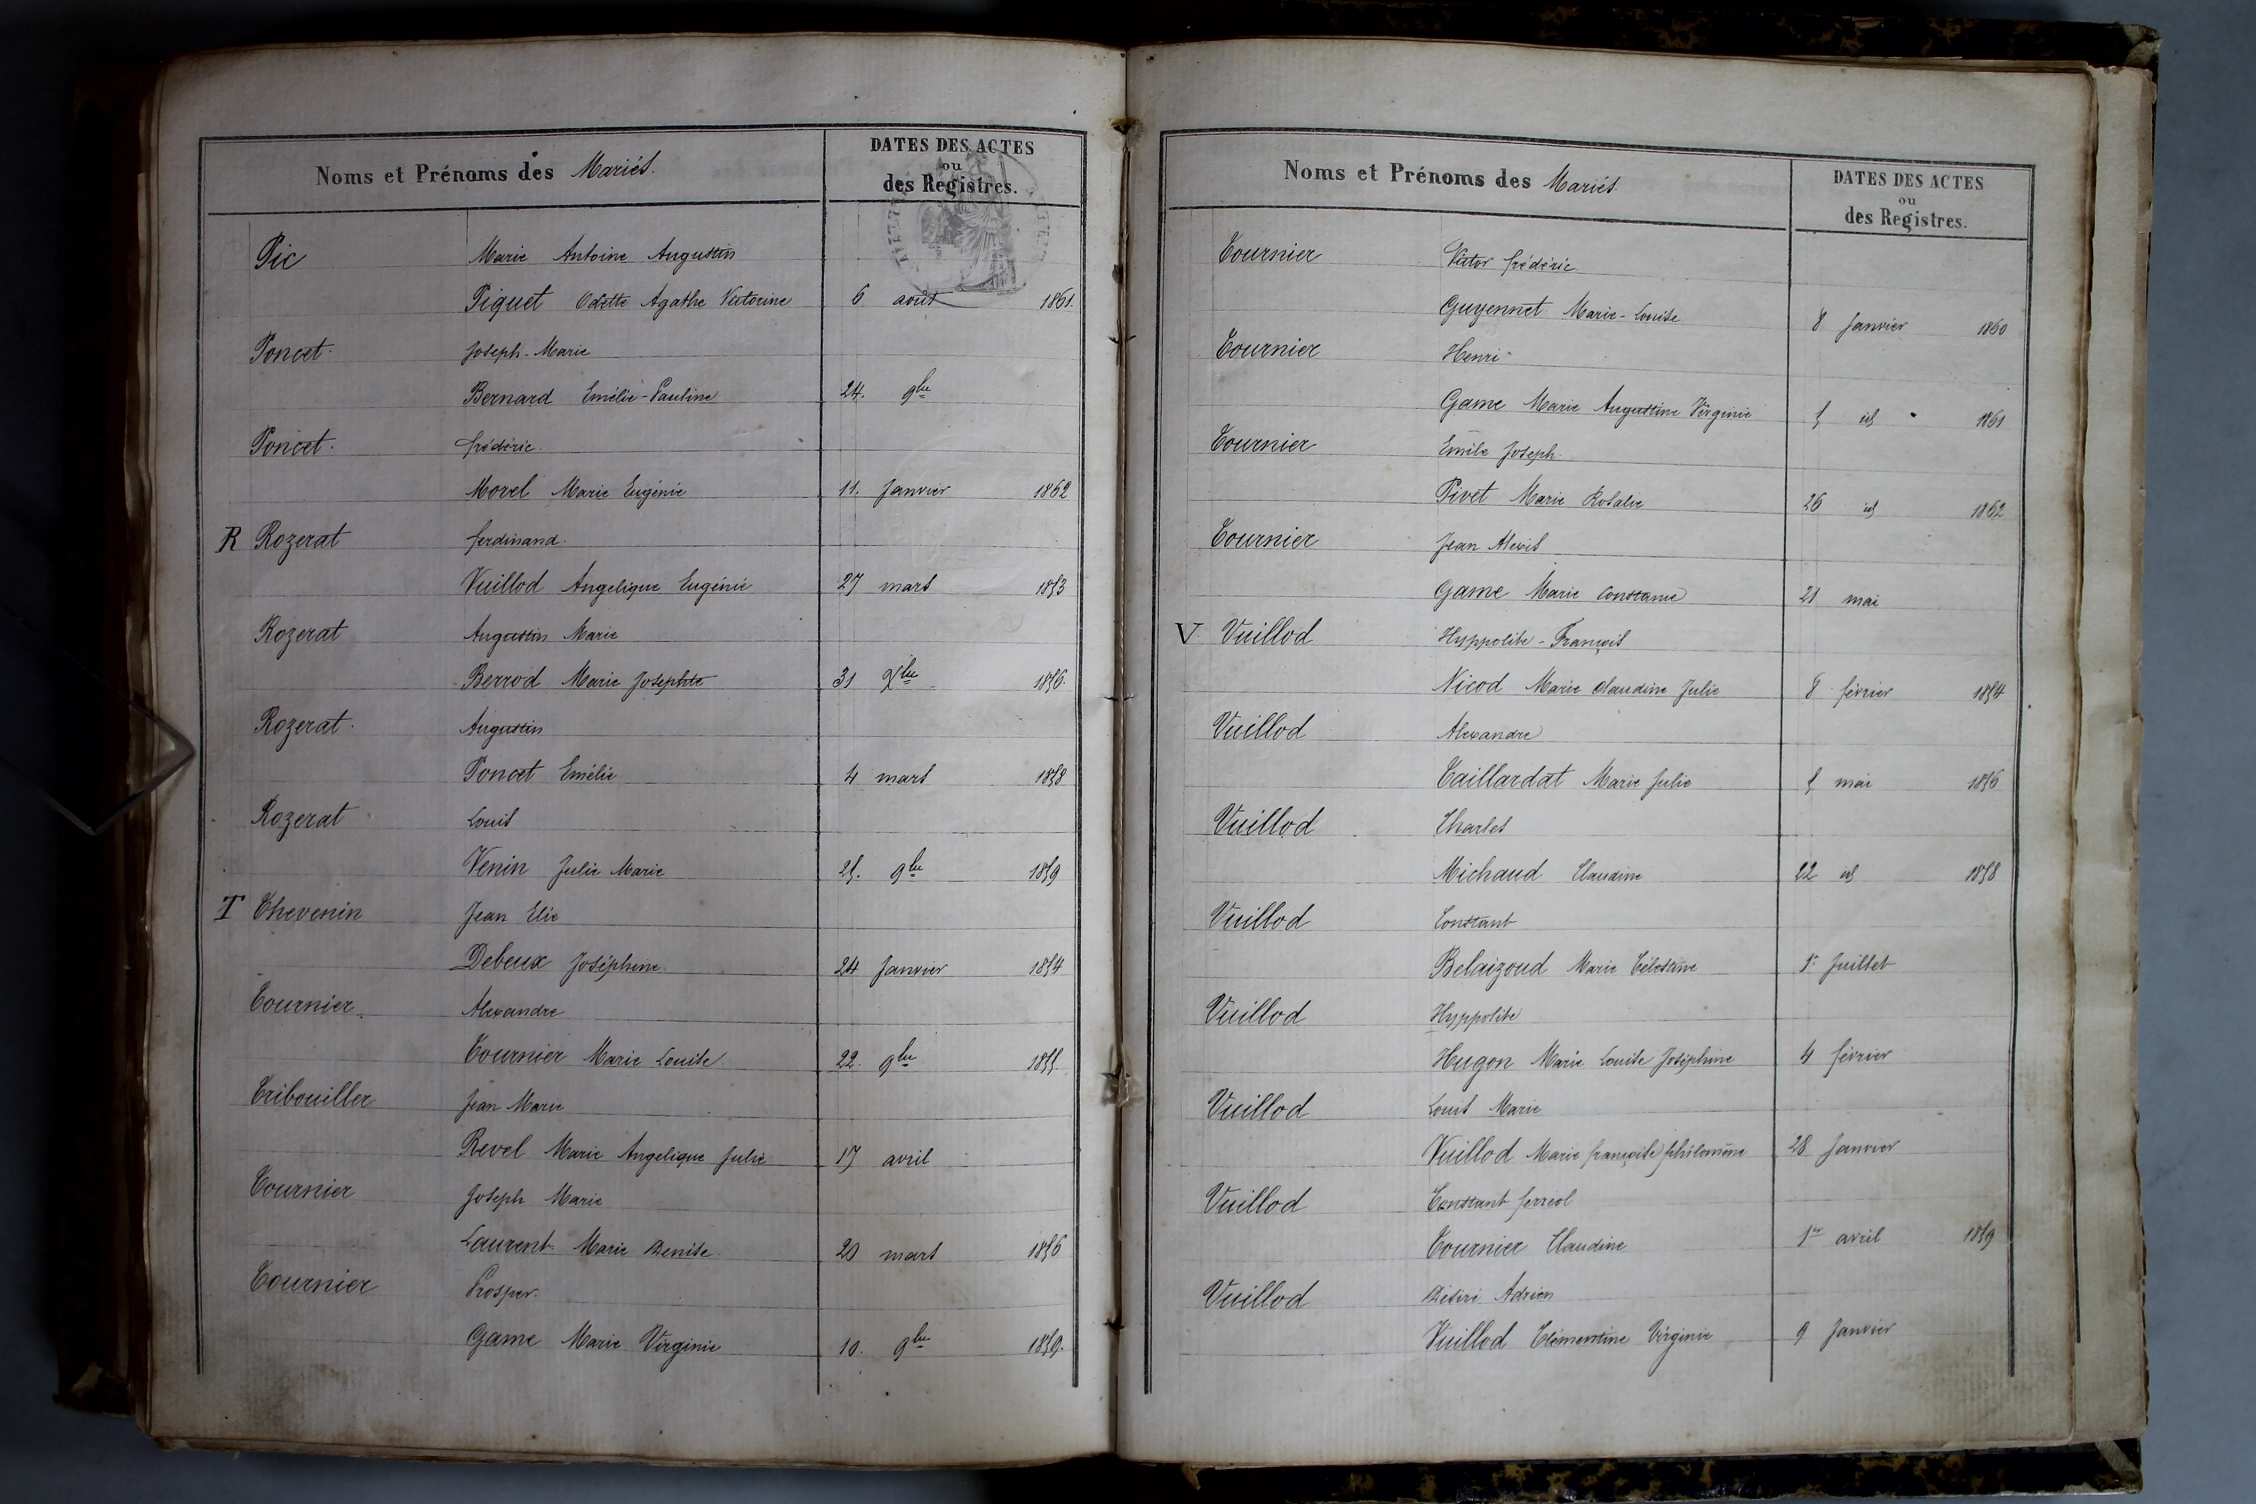 Noms et Prénoms des Mariés.
DATES DES ACTES
ou
des Registres.
Pic Marie Antoine Augustin
Piquet Odette Agathe Victorine 6 août 1861.
Poncet. Joseph-Marie
Bernard Emélie-Pauline 24. 9bre
Poncet. frédéric.
Morel Marie Eugénie 11. Janvier 1862
R Rozerat ferdinand.
Vuillod Angelique Eugénie 27 mars 1853
Rozerat Augustin Marie
Berrod Marie Josephte 31 Xbre 1856.
Rozerat. Augustin
Poncet Emélie 4 mars 1858
Rozerat Louis
Venin Julie Marie 25. 9bre 1859
T Thevenin Jean Elie
Debeux Joséphine 24 Janvier 1854
Tournier. Alexandre
Tournier Marie Louise 22. 9bre 1855.
Tribouiller Jean Marie
Revel Marie Angelique Julie 17 avril
Tournier Joseph Marie
Laurent Marie Denise. 20 mars 1856
Tournier Prosper.
Game Marie Virginie 10. 9bre 1859.
Noms et Prénoms des Mariés
DATES DES ACTES
ou
des Registres.
Tournier Victor frédéric
Guyennet Marie-Louise 8 Janvier 1860
Tournier Henri
Game Marie Augustine Virginie 5 id 1861
Tournier Emile Joseph.
Pivet Marie Rosalie 26 id 1862
Tournier Jean Alexis
Game Marie Constance 21 mai
V Vuillod Hyppolite-François
Nicod Marie Claudine Julie 8 février 1854
Vuillod Alexandre
Taillardat Marie Julie 5 mai 1856
Vuillod Charles
Michaud Claudine 22 id 1858
Vuillod Constant
Belaizoud Marie Célestine 1er Juillet
Vuillod Hyppolite
Hugon Marie Louise Joséphine 4 février
Vuillod Louis Marie
Vuillod Marie françoise philomène 28 Janvier
Vuillod Constant ferréol
Tournier Claudine 1er avril 1859
Vuillod Désiré Adrien
Vuillod Clémentine Virginie 9 Janvier